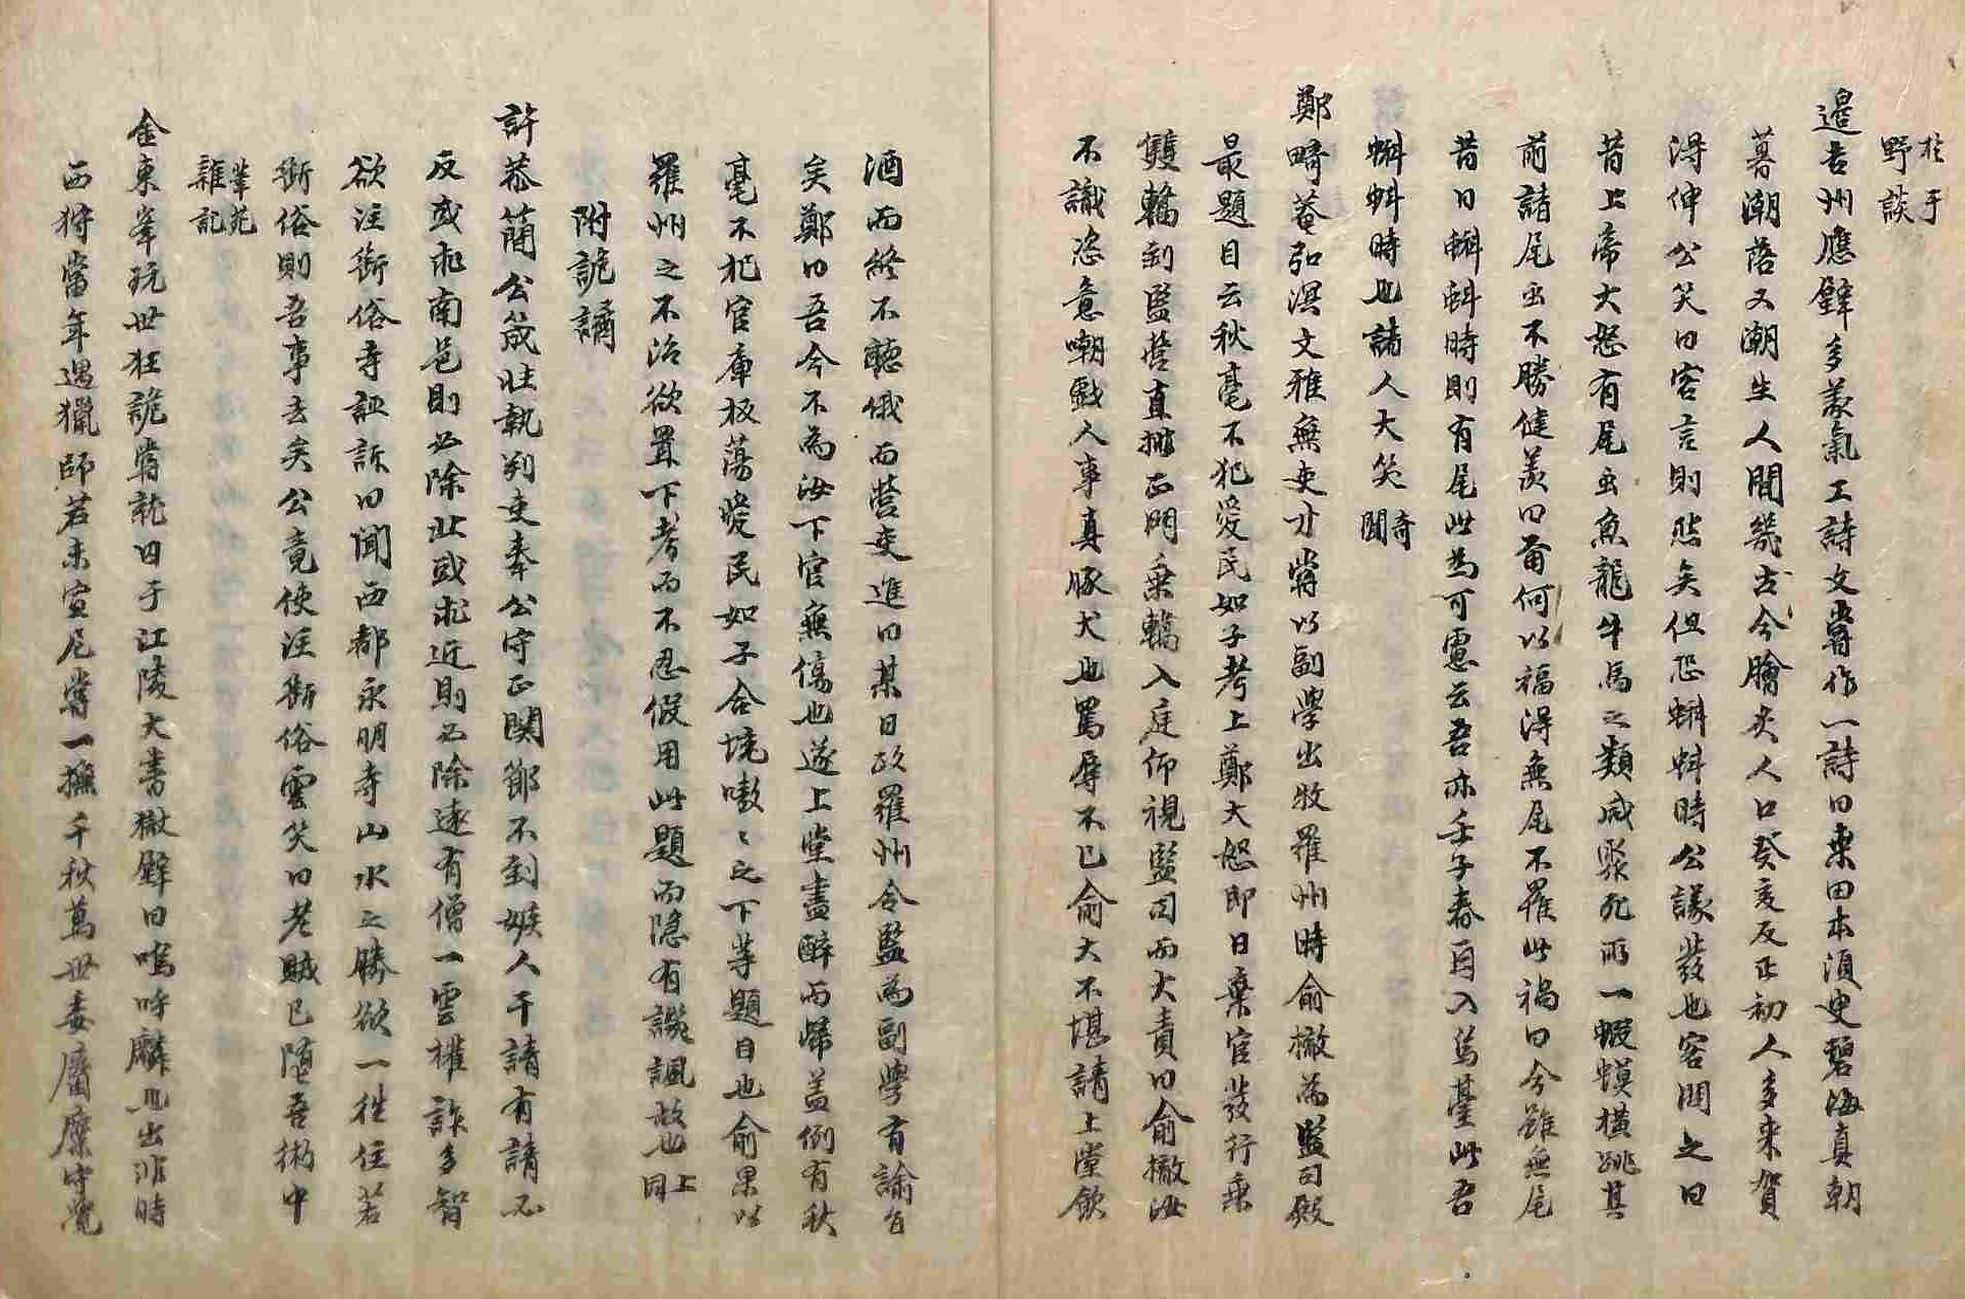 於于
野談
邊吉州應璧多義氣工詩文嘗作一詩曰桑田本須臾碧海真朝
暮潮落又潮生人間幾古今膾炙人口癸亥反正初人多来賀
得伸公笑曰客言則然矣但恐蝌蚪時公議發也客問之曰
昔上帝大怒有尾虫魚龍牛馬之類咸聚死而一蝦蟆橫跳其
前諸尾虫不勝健羡曰爾何以福得無尾不罹此禍曰今雖無尾
昔日蝌蚪時則有尾此為可慮云吾亦壬子春再入烏臺此吾
蝌蚪時也諸人大笑 奇聞
鄭畸菴弘溟文雅無吏才嘗以副學出牧羅州時俞撤為監司殿
最題目云秋毫不犯愛民如子考上鄭大怒即日棄官發行乘
雙轎到監營直排正門乘轎入庭仰視監司而大責曰俞撤汝
不識恣意嘲戱人事真豚犬也罵辱不已俞大不堪請上堂飲
酒而終不聽俄而營吏進曰某日政羅州令監為副學有諭旨
矣鄭曰吾今不為汝下官無傷也遂上堂盡醉而歸盖例有秋
毫不犯官庫板蕩愛民如子合境嗷〻之下等題目也俞果以
羅州之不治欲置下考而不忍假用此題而隐有譏諷故也 上同
附詭譎
許恭簡公箴性執剡吏奉公守正関節不到嫉人干請有請必
反或求南邑則必除北或求近則必除遠有僧一雲權詐多智
欲注衙俗寺誣訴曰聞西都永明寺山水之勝欲一徃住若
衙俗則吾事去矣公竟使注衙俗雲笑曰老賊已墮吾術中
菫苑
雜記
金東峯玩世狂詭嘗訪曰于江陵大書嶽壁曰嗚呼麟也出非時
西狩當年遇獵師若未宣尼嘗一撫千秋萬世委麕麋守覺